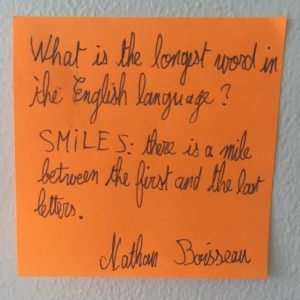 What is the longest word in
the English language?
SMILES: there is a mile
between the first and the last
letters.
Nathan Boisseau